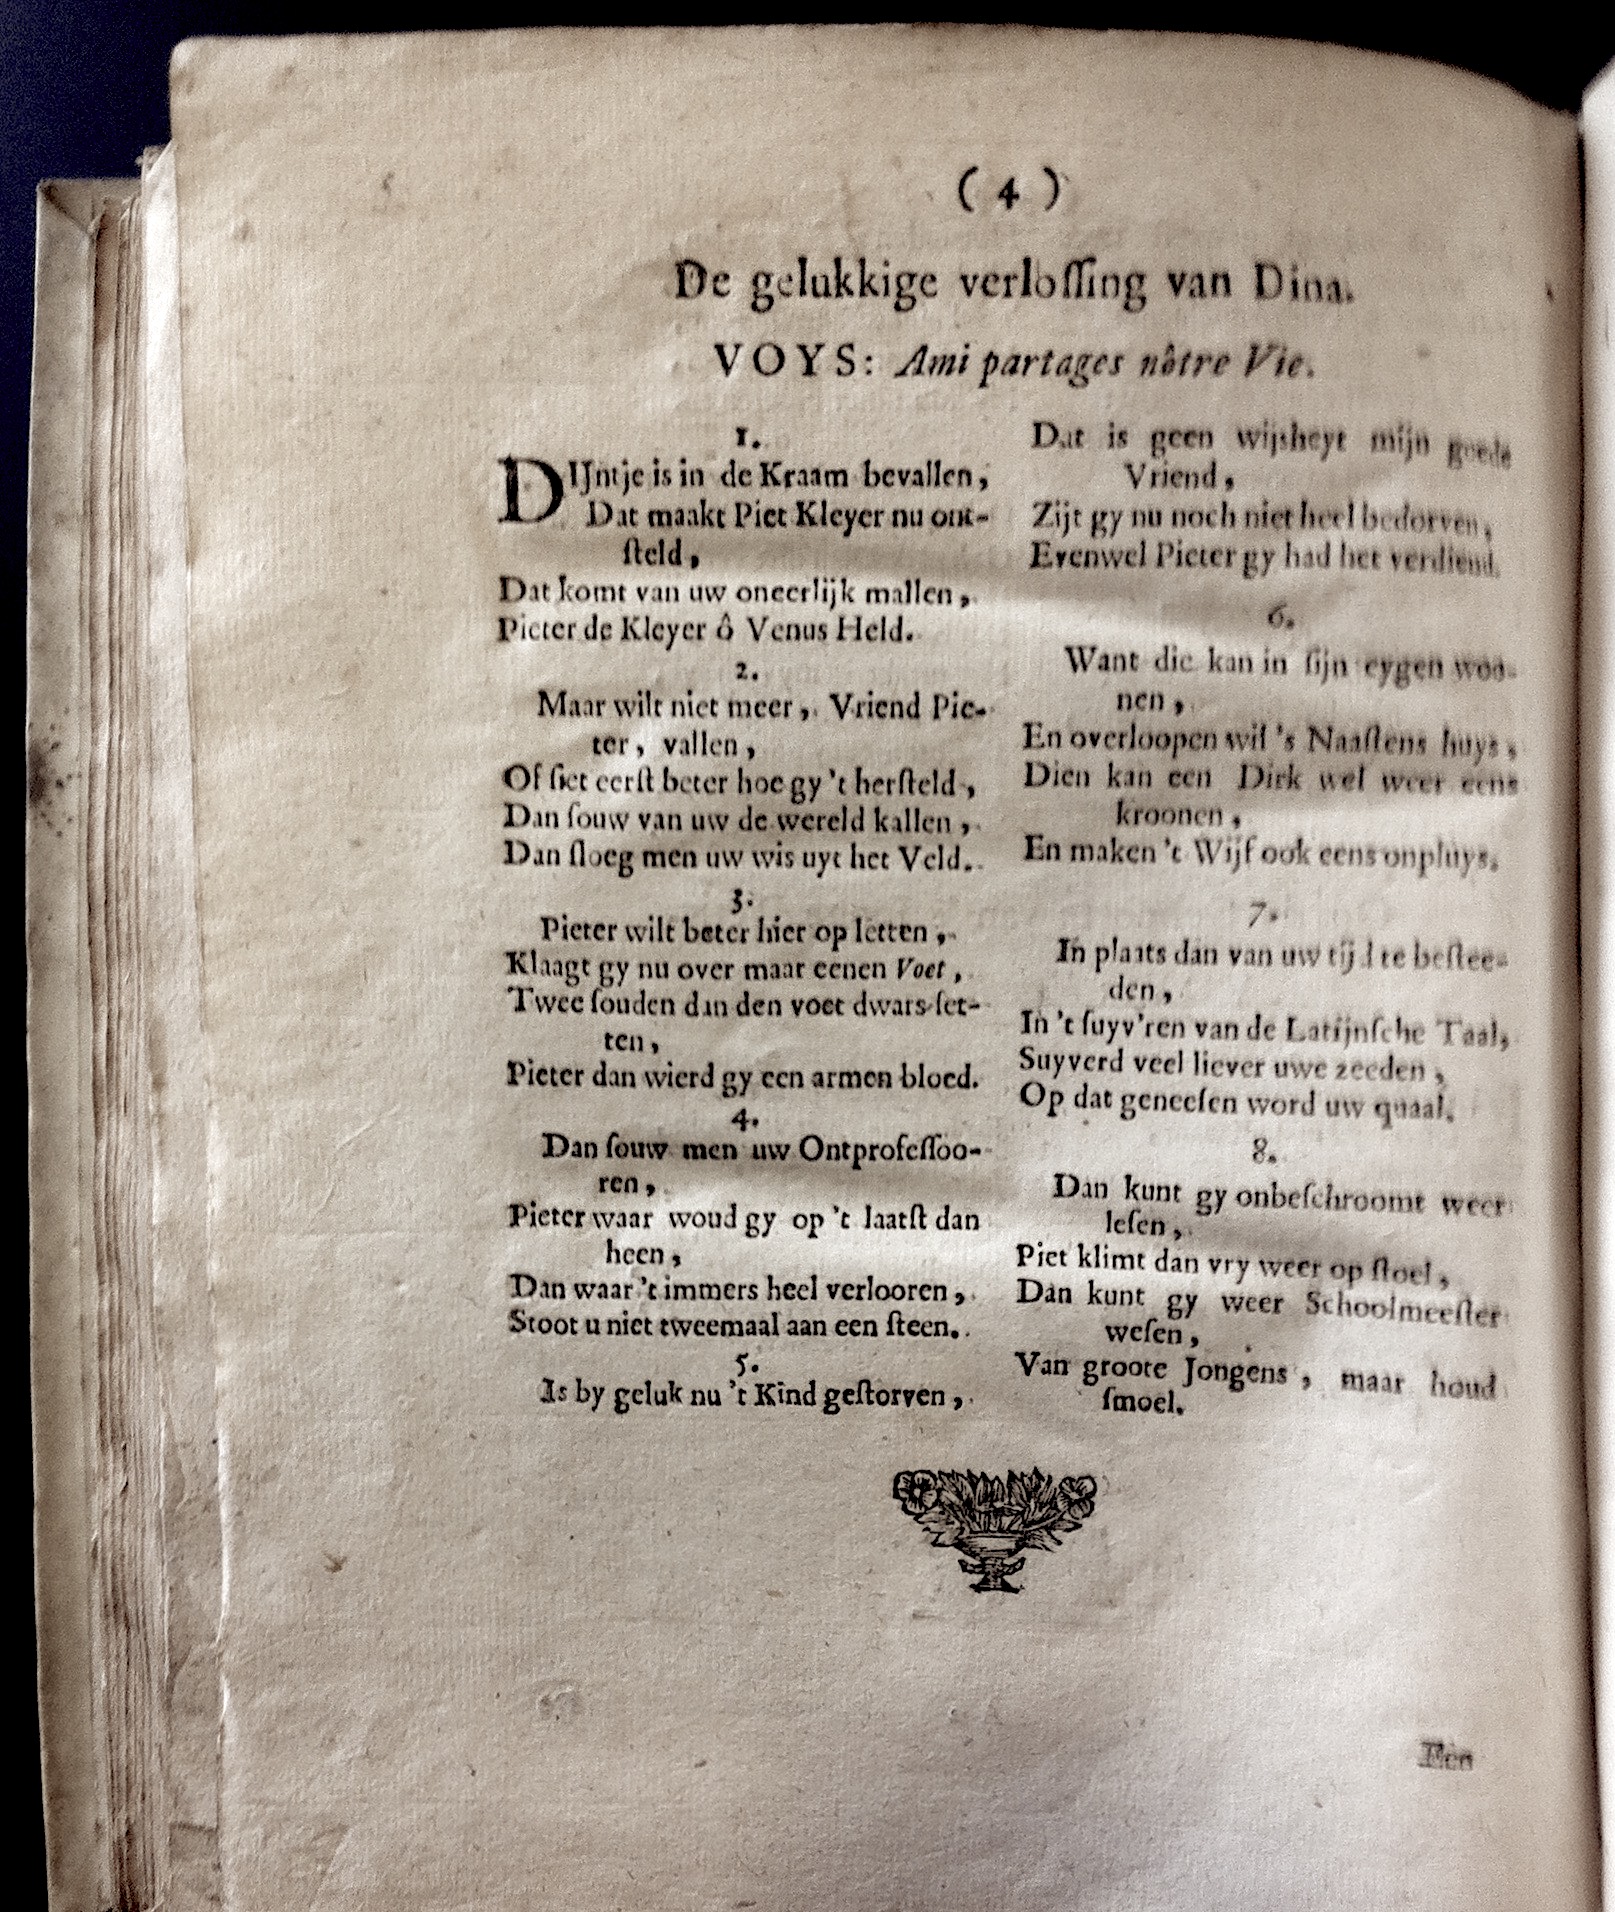 ( 4 )
De gelukkige verloſſing van Dina.
VOYS: Ami partages nôtre Vie.
1.
DIJntje is in de Kraam bevallen,
Dat maakt Piet Kleyer nu ont-
ſteld,
Dat komt van uw oneerlijk mallen,
Pieter de Kleyer ô Venus Held.
2.
Maar wilt niet meer, Vriend Pie-
ter, vallen,
Of ſiet eerſt beter hoe gy 't herſteld,
Dan ſouw van uw de wereld kallen,
Dan ſloeg men uw wis uyt het Veld.
3.
Pieter wilt beter hier op letten,
Klaagt gy nu over maar eenen Voet,
Twee ſouden dan den voet dwars ſet-
ten,
Pieter dan wierd gy een armen bloed.
4.
Dan ſouw men uw Ontprofeſſoo-
ren,
Pieter waar woud gy op 't laatſt dan
heen,
Dan waar 't immers heel verlooren,
Stoot u niet tweemaal aan een ſteen.
5.
Is by geluk nu 't Kind geſtorven,
Dat is geen wijsheyt mijn goede
Vriend,
Zijt gy nu noch niet heel bedorven,
Evenwel Pieter gy had het verdiend.
6.
Want die kan in ſijn eygen woo-
nen,
En overloopen wil 's Naaſtens huys,
Dien kan een Dirk wel weer eens
kroonen,
En maken 't Wijf ook eens onpluys.
7.
In plaats dan van uw tijd te beſtee-
den,
In 't ſuyv'ren van de Latijnſche Taal,
Suyverd veel liever uwe zeeden,
Op dat geneeſen word uw quaal.
8.
Dan kunt gy onbeſchroomt weer
leſen,
Piet klimt dan vry weer op ſtoel,
Dan kunt gy weer Schoolmeeſter
weſen,
Van groote Jongens, maar houd
ſmoel.
Een